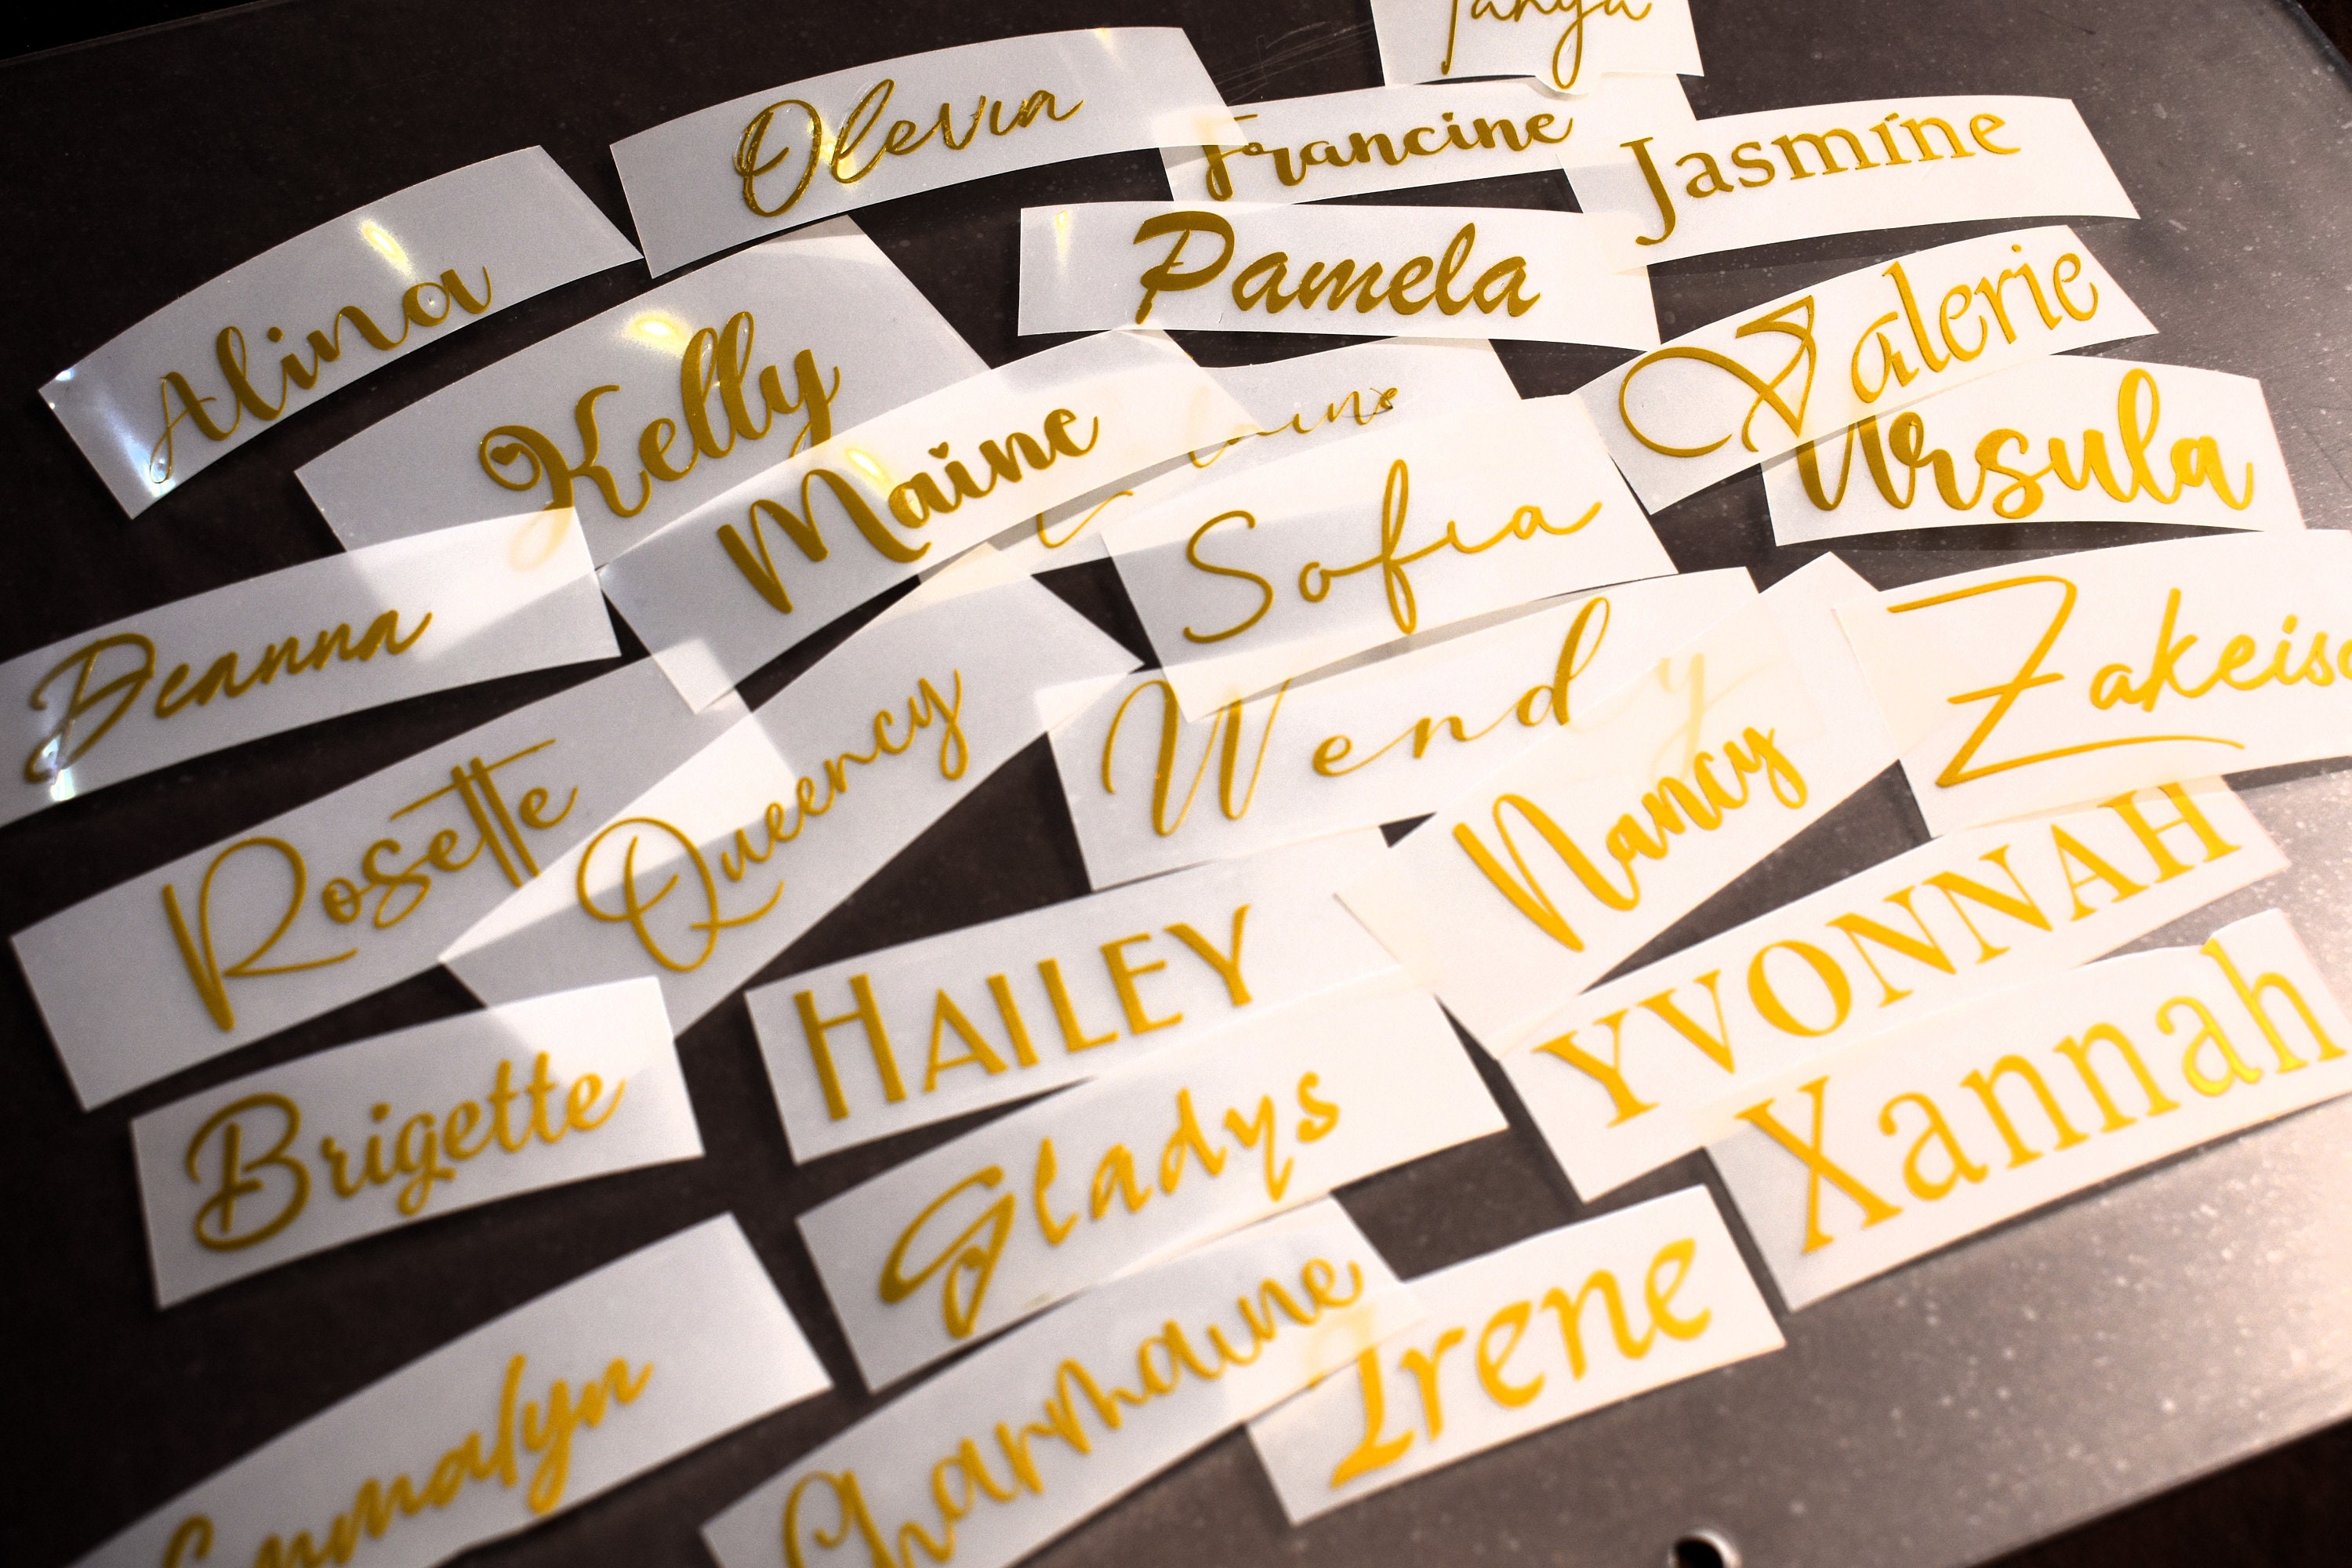 Tanya
Olevia
Francine
Jasmine
Alina
Pamela
Kelly
Valerie
Maine
Ursula
Sofia
Deanna
Wendy
Zakeisa
Rosette
Queency
Nancy
YVONNAH
HAILEY
Xannah
Brigette
Gladys
Irene
Charmaine
Emmalyn